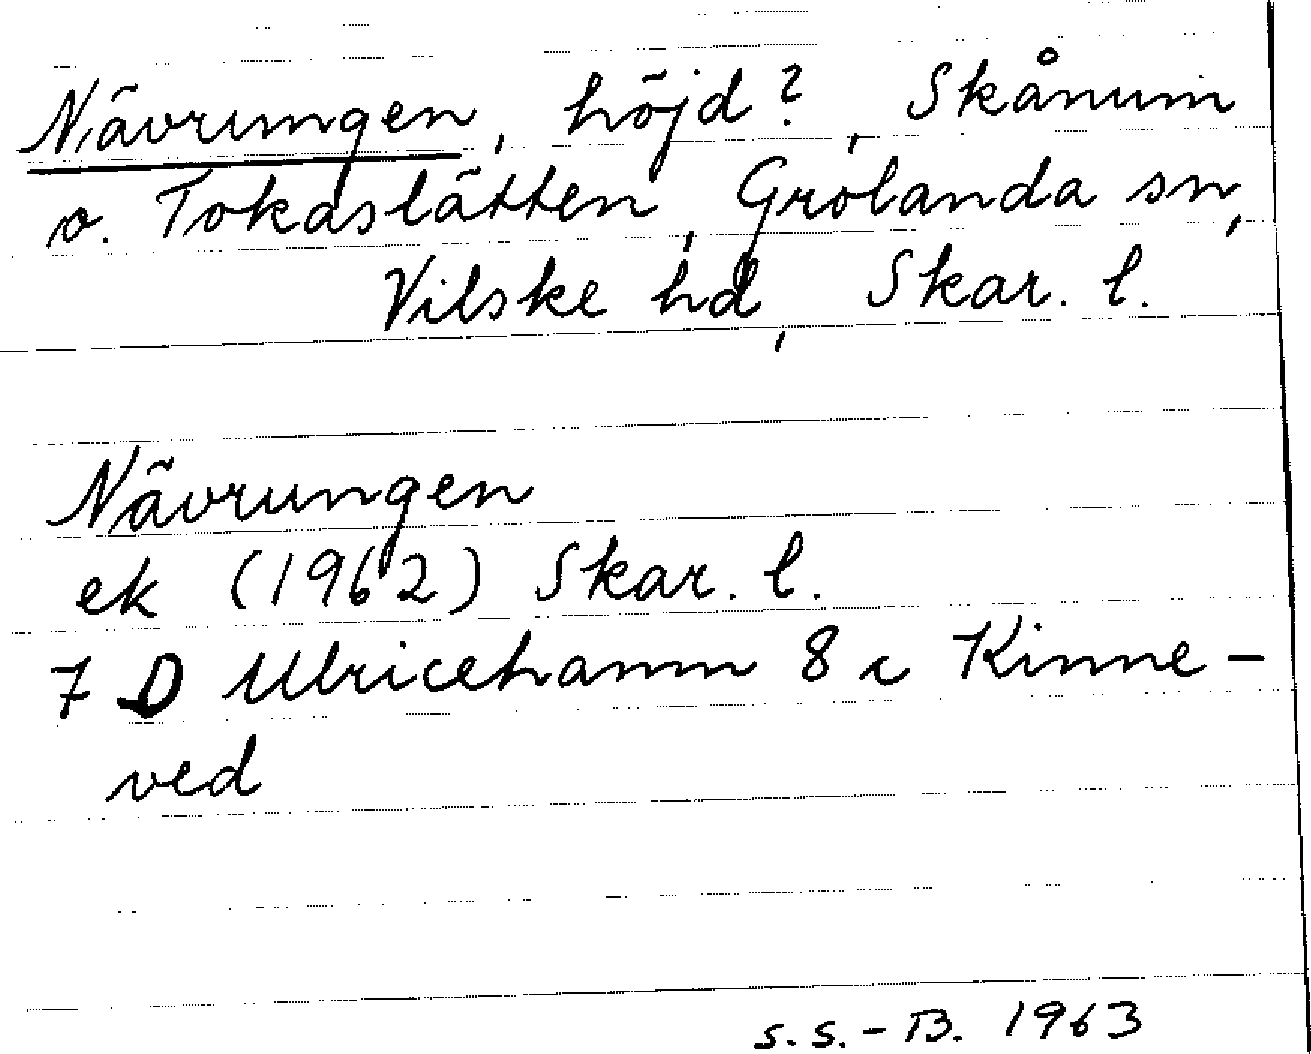 Nävrungen, höjd?, Skånum
o. Tokaslätten, Grolanda sn,
Vilske hd, Skar. l.
Nävrungen
ek (1962) Skar. l.
7 D Ulricehamn 8 c Kinne-
ved
S.S.-B. 1963